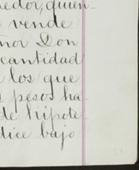 edor, quien
vende
ñor Don
cantidad
e los que
pesos ha
de hipote
dice bajo